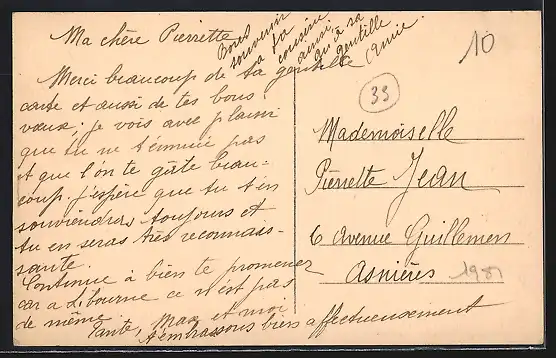 Ma chère Pierrette
Bons
souvenirs
à ta
cousine
ainsi
qu'à sa
gentille
amie.
Merci beaucoup de ta gentille
carte et aussi de tes bons
vœux; je vois avec plaisir
que tu ne t'ennuie pas
et que l'on te gâte beau-
coup. j'espère que tu t'en
souviendras toujours et
tu en seras très reconnais-
sante.
Continue à bien te promener
car a Libourne ce n'est pas
de même.
Tante, Max et moi
t'embrassons bien affectueusement
10
33
Mademoiselle
Pierrette Jean
6 Avenue Guillemen
Asnières